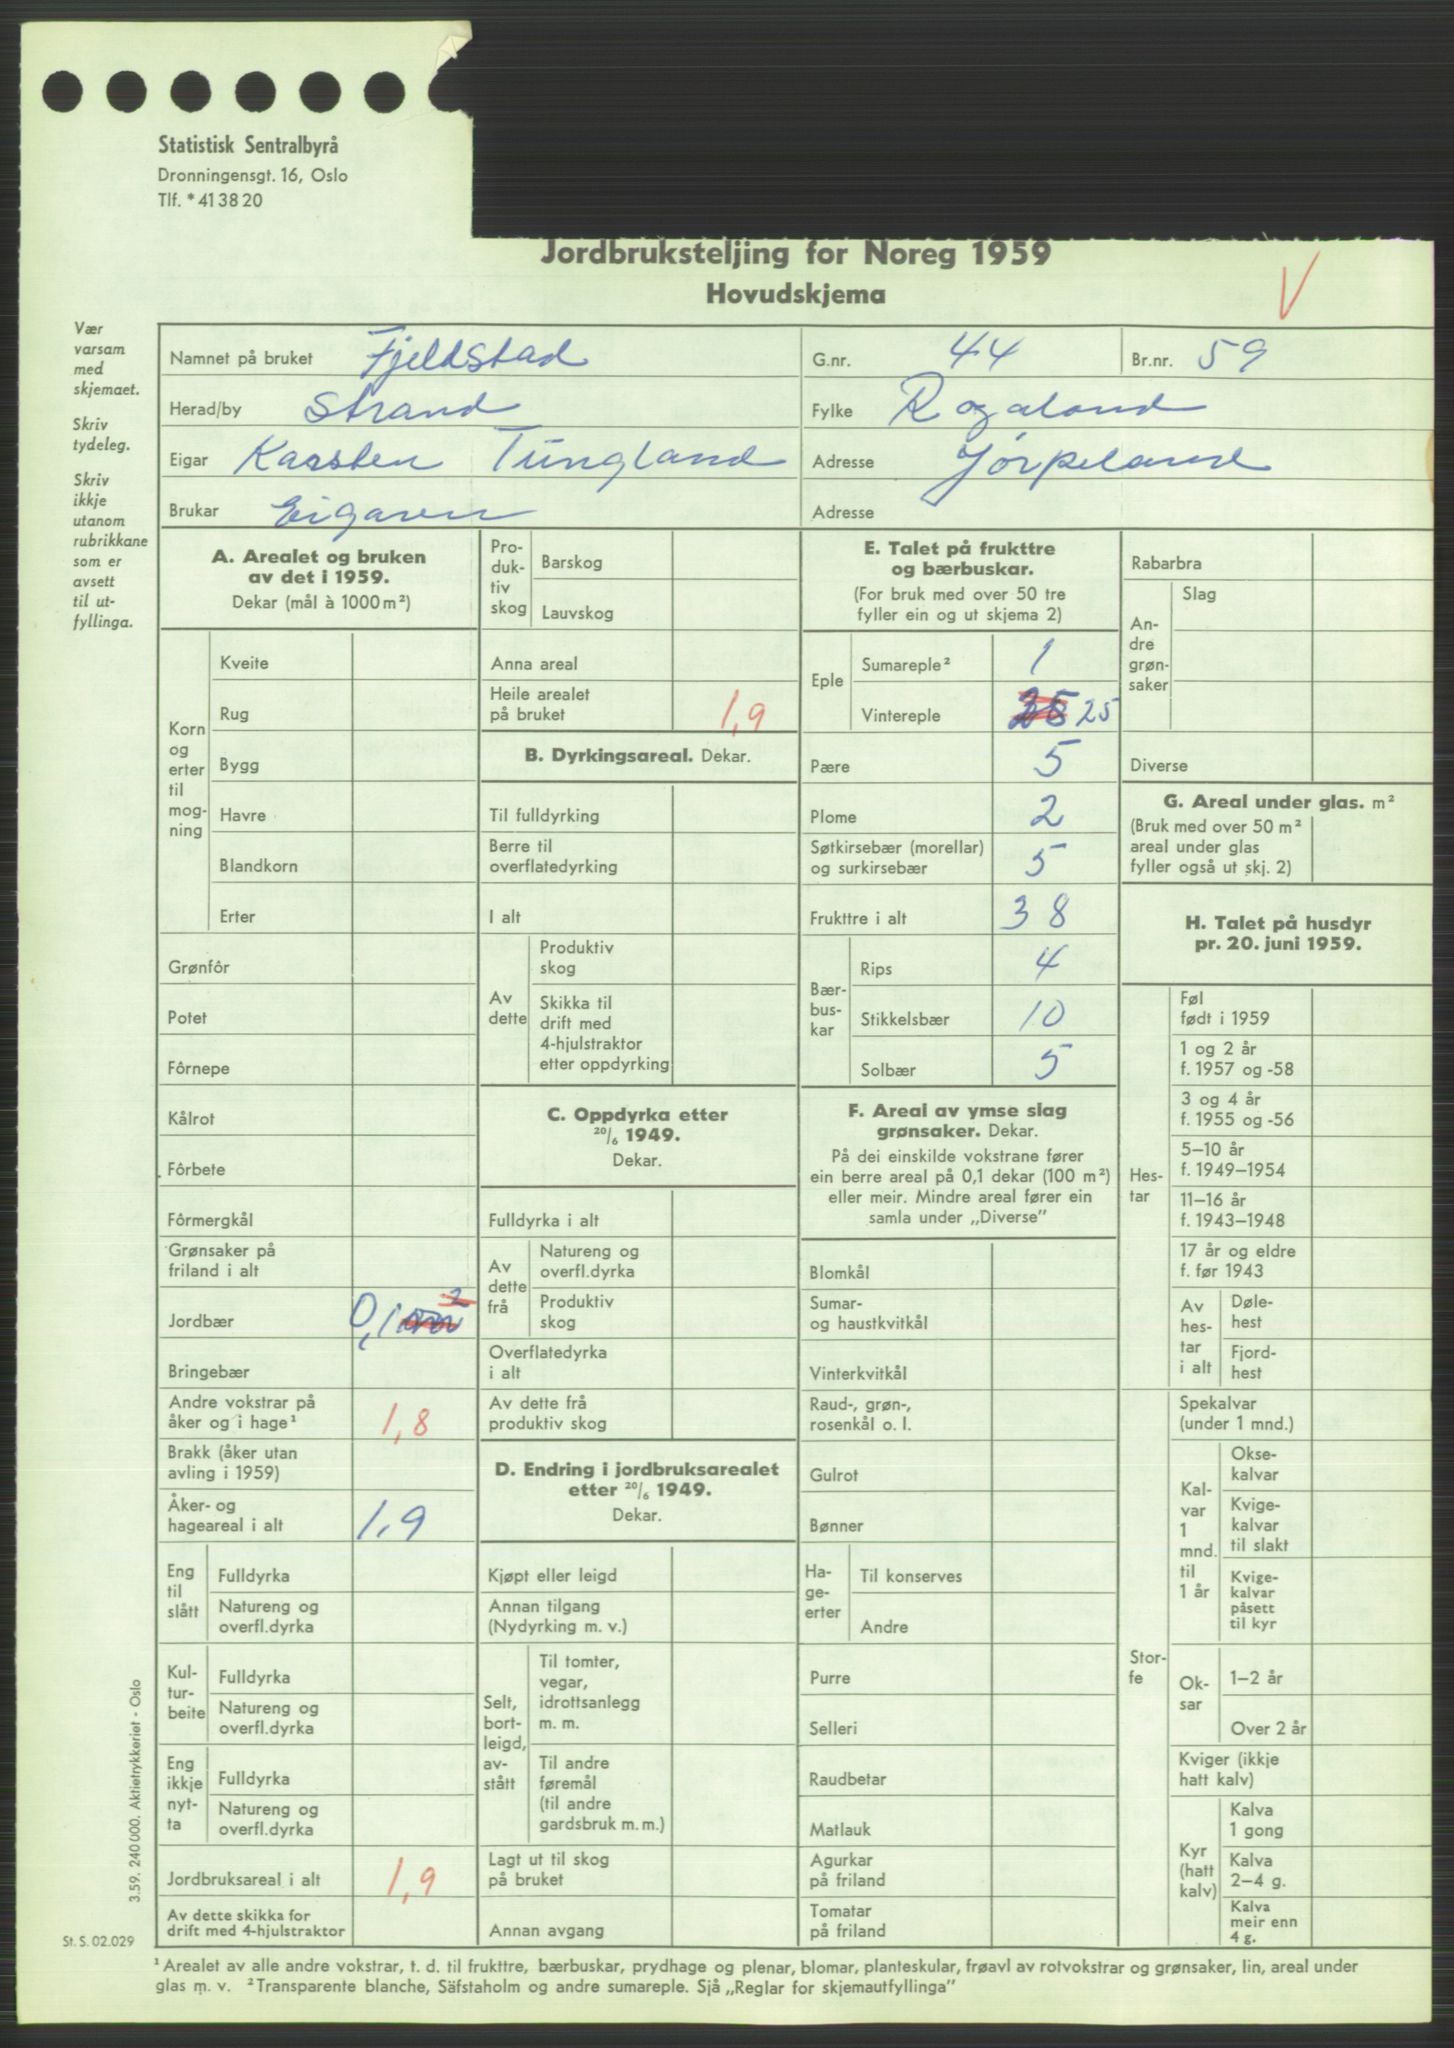 Statistisk Sentralbyrå
Dronningensgt. 16, Oslo
Tlf. * 41 38 20
Jordbruksteljing for Noreg 1959
Hovudskjema
V
Vær
varsam
med
skjemaet.
Skriv
tydeleg.
Skriv
ikkje
utanom
rubrikkane
som er
avsett
til ut-
fyllinga.
Namnet på bruket Fjeldstad G.nr. 44 Br.nr. 59
Herad/by Strand Fylke Rogaland
Eigar Karsten Tungland Adresse Jørpeland
Brukar Eigaren Adresse
A. Arealet og bruken
av det i 1959.
Dekar (mål à 1000 m²)
Korn
og
erter
til
mog-
ning
Kveite
Rug
Bygg
Havre
Blandkorn
Erter
Grønfôr
Potet
Fôrnepe
Kålrot
Fôrbete
Fôrmergkål
Grønsaker på
friland i alt
Jordbær 0,1
Bringebær
Andre vokstrar på
åker og i hage¹ 1,8
Brakk (åker utan
avling i 1959)
Åker- og
hageareal i alt 1,9
Eng
til
slått
Fulldyrka
Natureng og
overfl.dyrka
Kul-
tur-
beite
Fulldyrka
Natureng og
overfl.dyrka
Eng
ikkje
nyt-
ta
Fulldyrka
Natureng og
overfl.dyrka
Jordbruksareal i alt 1,9
Av dette skikka for
drift med 4-hjulstraktor
Pro-
duk-
tiv
skog
Barskog
Lauvskog
Anna areal
Heile arealet
på bruket 1,9
B. Dyrkingsareal. Dekar.
Til fulldyrking
Berre til
overflatedyrking
I alt
Av
dette
Produktiv
skog
Skikka til
drift med
4-hjulstraktor
etter oppdyrking
C. Oppdyrka etter
20/6 1949.
Dekar.
Fulldyrka i alt
Av
dette
frå
Natureng og
overfl.dyrka
Produktiv
skog
Overflatedyrka
i alt
Av dette frå
produktiv skog
D. Endring i jordbruksarealet
etter 20/6 1949.
Dekar.
Kjøpt eller leigd
Annan tilgang
(Nydyrking m. v.)
Selt,
bort-
leigd,
av-
stått
Til tomter,
vegar,
idrottsanlegg
m. m.
Til andre
føremål
(til andre
gardsbruk m. m.)
Lagt ut til skog
på bruket
Annan avgang
E. Talet på frukttre
og bærbuskar.
(For bruk med over 50 tre
fyller ein og ut skjema 2)
Eple
Sumareple² 1
Vintereple 25
Pære 5
Plome 2
Søtkirsebær (morellar)
og surkirsebær 5
Frukttre i alt 38
Bær-
bus-
kar
Rips 4
Stikkelsbær 10
Solbær 5
F. Areal av ymse slag
grønsaker. Dekar.
På dei einskilde vokstrane fører
ein berre areal på 0,1 dekar (100 m²)
eller meir. Mindre areal fører ein
samla under „Diverse”
Blomkål
Sumar-
og haustkvitkål
Vinterkvitkål
Raud-, grøn-,
rosenkål o. l.
Gulrot
Bønner
Ha-
ge-
erter
Til konserves
Andre
Purre
Selleri
Raudbetar
Matlauk
Agurkar
på friland
Tomatar
på friland
Rabarbra
An-
dre
grøn-
saker
Slag
Diverse
G. Areal under glas. m²
(Bruk med over 50 m²
areal under glas
fyller også ut skj. 2)
H. Talet på husdyr
pr. 20. juni 1959.
Hes-
tar
Føl
født i 1959
1 og 2 år
f. 1957 og -58
3 og 4 år
f. 1955 og -56
5–10 år
f. 1949–1954
11–16 år
f. 1943–1948
17 år og eldre
f. før 1943
Av
hes-
tar
i alt
Døle-
hest
Fjord-
hest
Stor-
fe
Spekalvar
(under 1 mnd.)
Kal-
var
1
mnd.
til
1 år
Okse-
kalvar
Kvige-
kalvar
til slakt
Kvige-
kalvar
påsett
til kyr
Ok-
sar
1–2 år
Over 2 år
Kviger (ikkje
hatt kalv)
Kyr
(hatt
kalv)
Kalva
1 gong
Kalva
2–4 g.
Kalva
meir enn
4 g.
3.59. 240 000. Aktietrykkeriet - Oslo
St. S. 02.029
¹ Arealet av alle andre vokstrar, t. d. til frukttre, bærbuskar, prydhage og plenar, blomar, planteskular, frøavl av rotvokstrar og grønsaker, lin, areal under
glas m. v. ² Transparente blanche, Säfstaholm og andre sumareple. Sjå „Reglar for skjemautfyllinga”